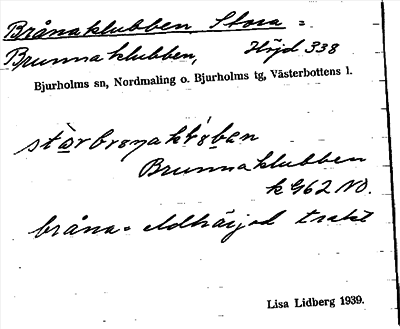 Brånaklubben, Stora =
Brunnaklubben, Höjd 338
Bjurholms sn, Nordmaling o. Bjurholms tg, Västerbottens l.
Brunnaklubben
k G62 NO.
bråna = eldhärjad trakt
Lisa Lidberg 1939.